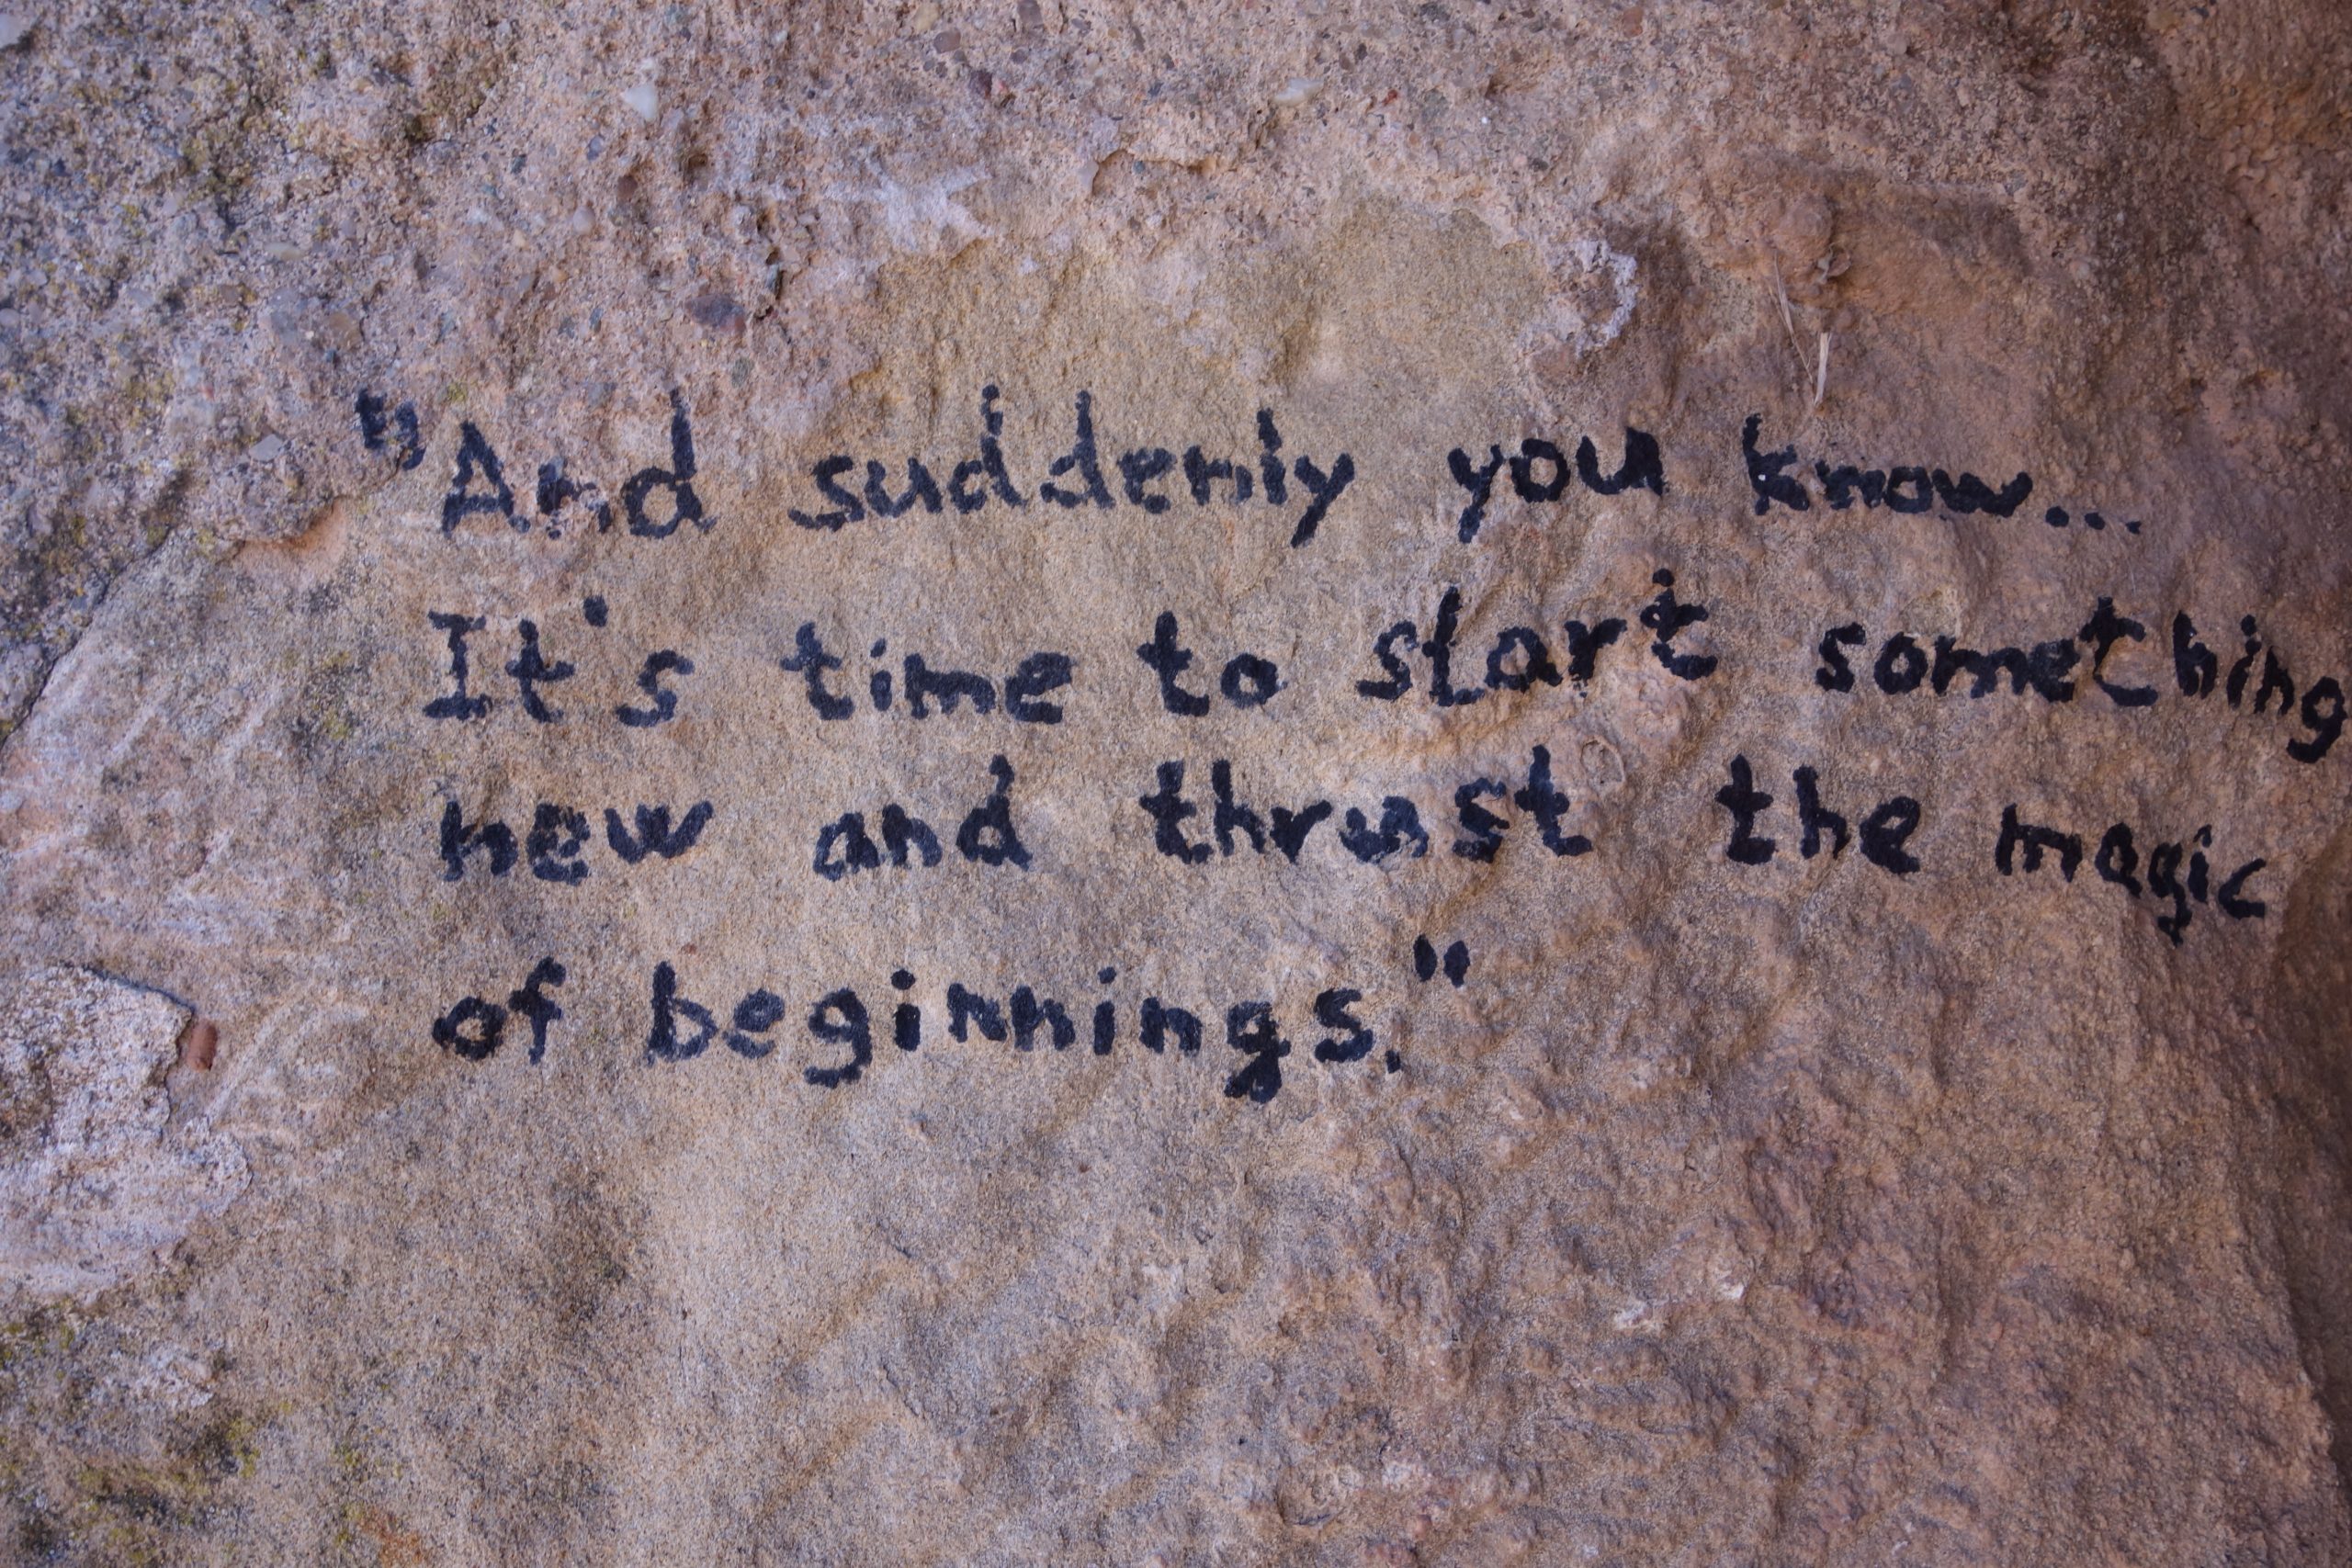 "And suddenly you know...
It's time to start something
new and thrust the magic
of beginnings."